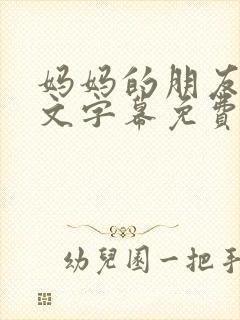 妈妈的朋友
文字幕免費
幼兒園一把手